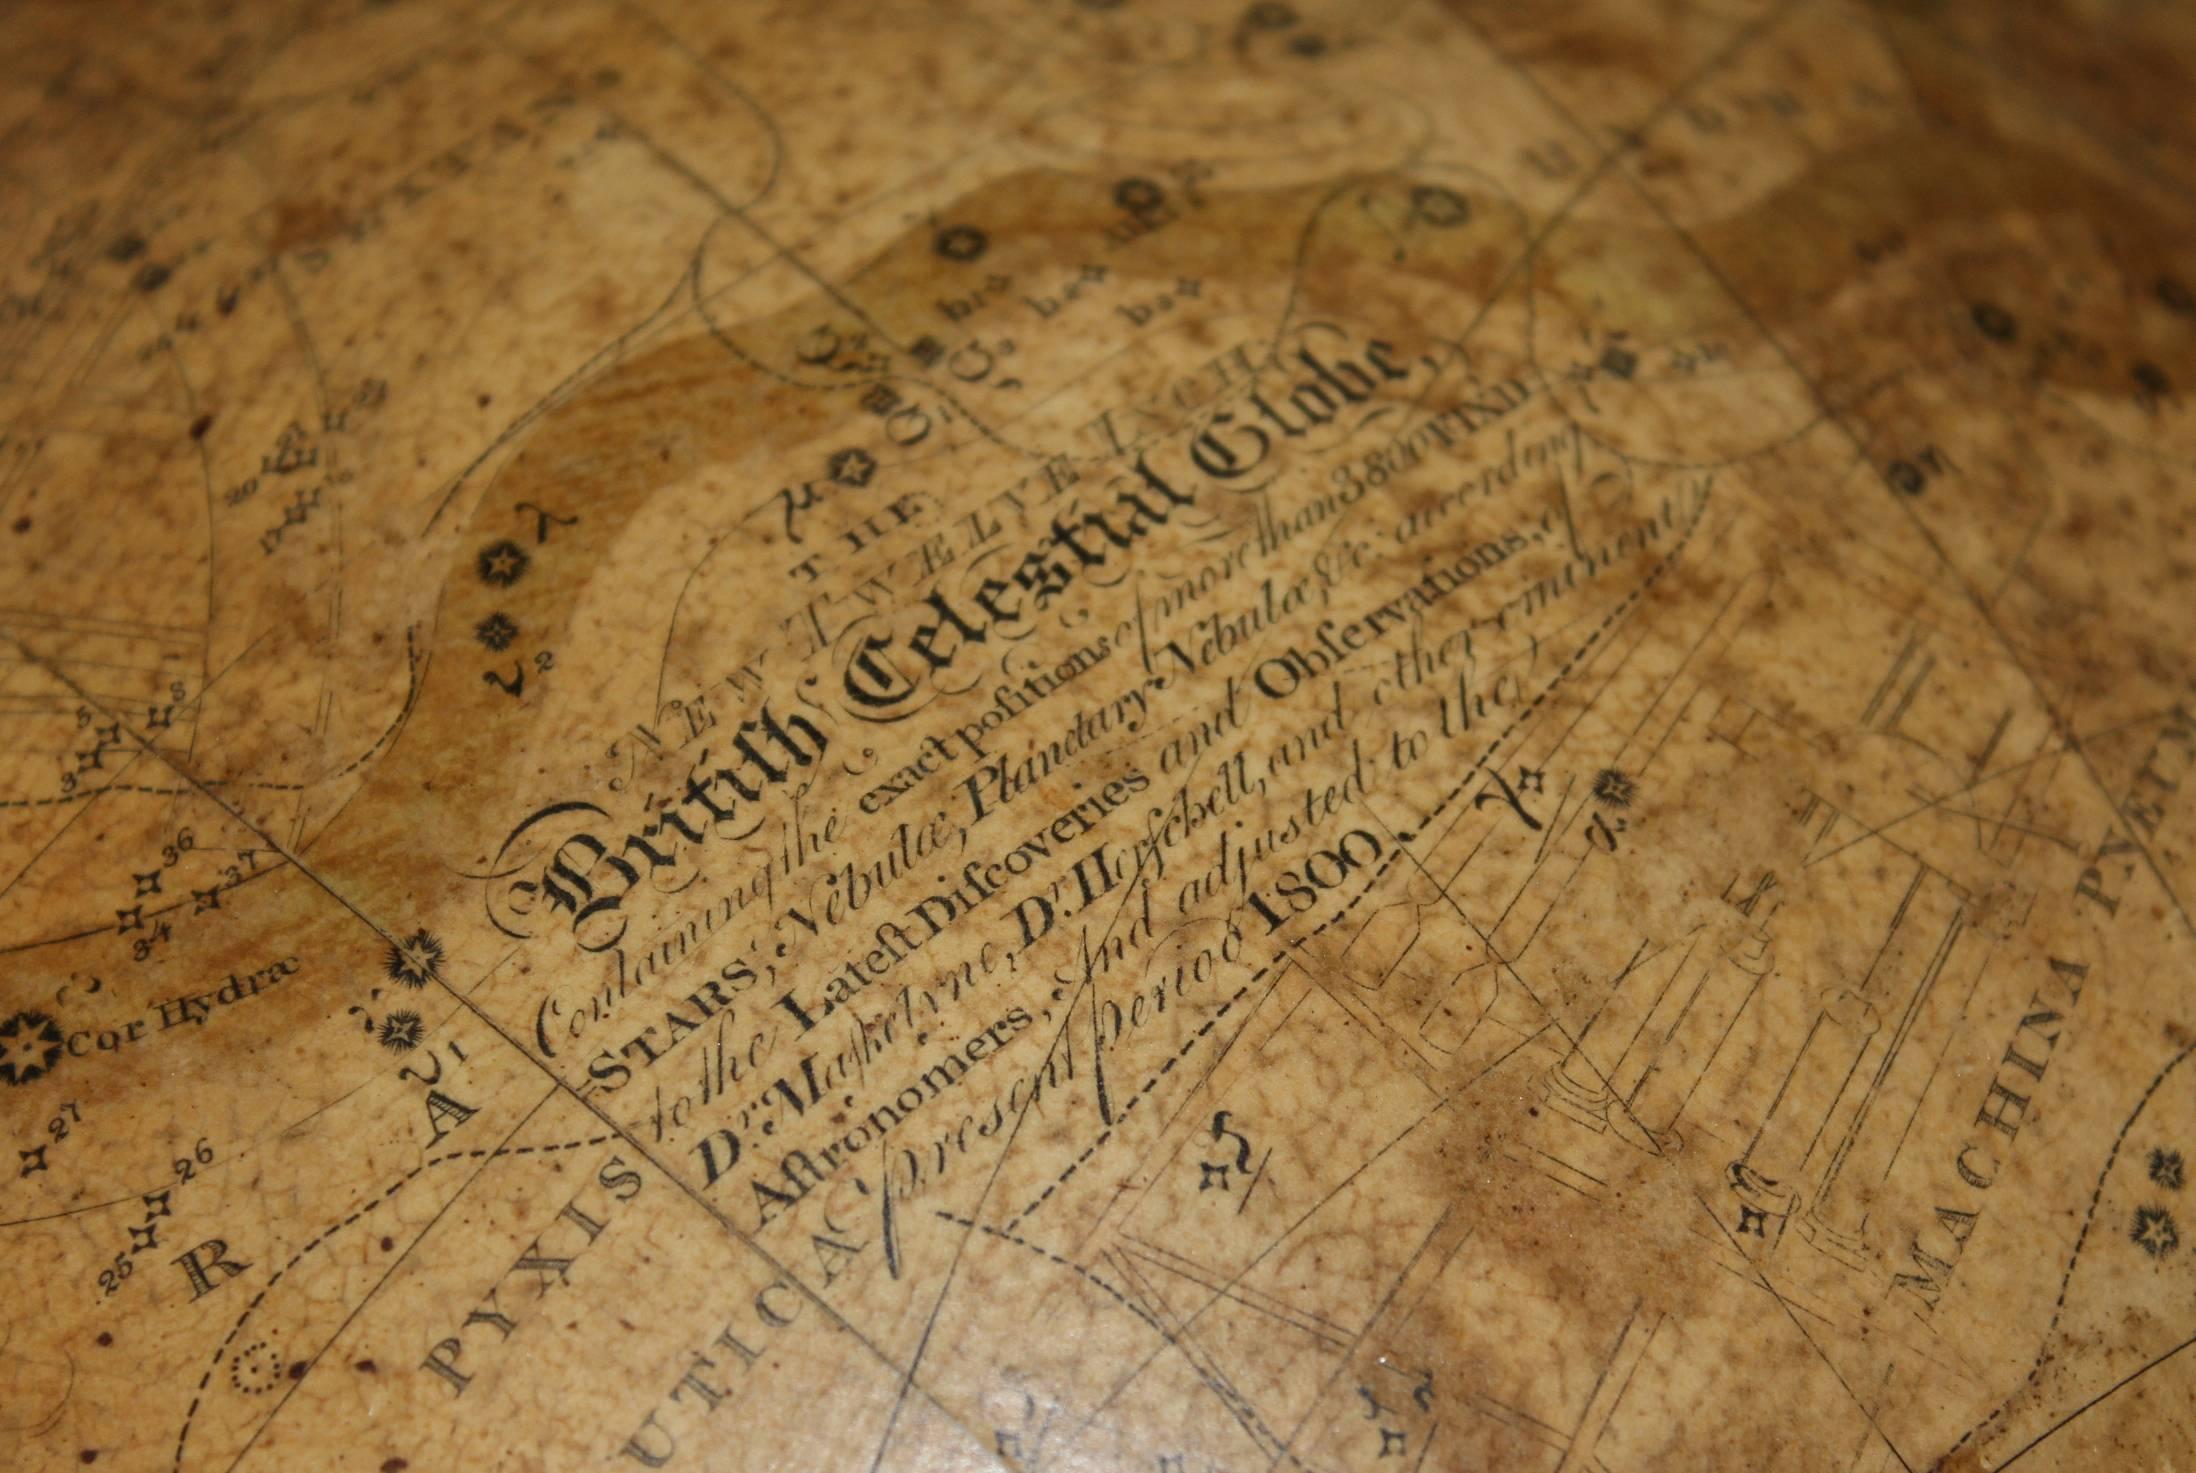 THE
NEW TWELVE INCH
Britiſh Celestial Globe,
Containing the exact poſitions of more than 3800 FIXED
STARS, Nebulæ, Planetary Nebulæ, &c. according
to the Lateſt Diſcoveries and Obſervations, of
Dr. Maſkelyne, Dr. Herſchell, and other eminent
Aſtronomers, And adjusted to the
present period 1800.
Cor Hydræ
R
A
PYXIS
UTICA
MACHINA PNEU
SEXTAN
λ
υ2
υ1
μ
b1
b2
b3
36
37
34
27
26
25